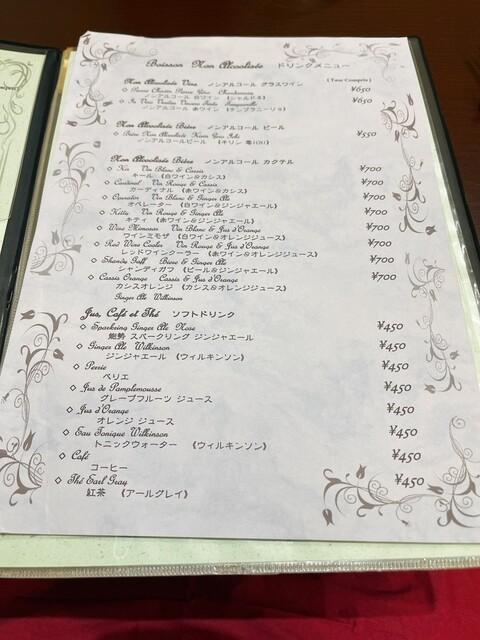 Boisson Non Alcoolisée ドリンクメニュー
(Taxe Compris)
Non Alcoolisée Vins ノンアルコール グラスワイン
◇ Pierre Chavin Pierre Zéro Chardonnay ¥650
ノンアルコール 白ワイン (シャルドネ)
◇ Tempranillo ¥650
ノンアルコール 赤ワイン (テンプラニーリョ)
Non Alcoolisée Bière ノンアルコール ビール
◇ Bière Non Alcoolisée Kirin Zero Ichi ¥550
ノンアルコールビール (キリン 零ICHI)
Non Alcoolisée Bière ノンアルコール カクテル
◇ Kir Vin Blanc & Cassis ¥700
キール (白ワイン&カシス)
◇ Cardinal Vin Rouge & Cassis ¥700
カーディナル (赤ワイン&カシス)
◇ Operator Vin Blanc & Ginger Ale ¥700
オペレーター (白ワイン&ジンジャエール)
◇ Kitty Vin Rouge & Ginger Ale ¥700
キティ (赤ワイン&ジンジャエール)
◇ Wine Mimosas Vin Blanc & Jus d'Orange ¥700
ワインミモザ (白ワイン&オレンジジュース)
◇ Red Wine Cooler Vin Rouge & Jus d'Orange ¥700
レッドワインクーラー (赤ワイン&オレンジジュース)
◇ Shandy Gaff Biere & Ginger Ale ¥700
シャンディガフ (ビール&ジンジャエール)
◇ Cassis Orange Cassis & Jus d'Orange ¥700
カシスオレンジ (カシス&オレンジジュース)
Ginger Ale Wilkinson
Jus, Café et Thé ソフトドリンク
◇ Sparkring Ginger Ale Nose ¥450
能勢 スパークリング ジンジャエール
◇ Ginger Ale Wilkinson ¥450
ジンジャエール (ウィルキンソン)
◇ Perrie ¥450
ペリエ
◇ Jus de Pamplemousse ¥450
グレープフルーツ ジュース
◇ Jus d'Orange ¥450
オレンジ ジュース
◇ Eau Tonique Wilkinson ¥450
トニックウォーター (ウィルキンソン)
◇ Café ¥450
コーヒー
◇ Thé Earl Gray ¥450
紅茶 (アールグレイ)